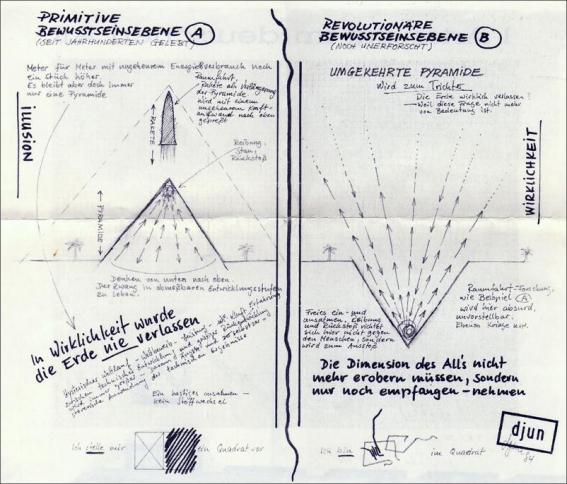 PRIMITIVE
BEWUSSTSEINSEBENE A
(SEIT JAHRHUNDERTEN GELEBT)
Meter für Meter mit ungeheurem Energieverbrauch noch
ein Stück höher.
Es bleibt aber doch immer
nur eine Pyramide
ILLUSION
Raumfahrt,
Rakete als Verlängerung
der Pyramide
wird mit einem
ungeheuren Kraft-
aufwand nach oben
gepreßt
RAKETE
Reibung,
Stau,
Rückstoß
PYRAMIDE
Denken von unten nach oben.
Der Zwang in abmeßbaren Entwicklungsstufen
zu leben.
In Wirklichkeit wurde
die Erde nie verlassen
technischer Entwicklung und
technischen Ergebnisse
Ein hastiges ausatmen –
kein Stoffwechsel
Ich stelle mir ein Quadrat vor
REVOLUTIONÄRE
BEWUSSTSEINSEBENE B
(NOCH UNERFORSCHT)
UMGEKEHRTE PYRAMIDE
Wird zum Trichter
Die Erde wirklich verlassen?
Weil diese Frage nicht mehr
von Bedeutung ist.
WIRKLICHKEIT
Freies ein- und
ausatmen, Reibung
und Rückstoß richtet
sich hier nicht gegen
den Menschen, sondern
wird zum Ausstoß
Raumfahrt-Forschung,
wie Beispiel A
wird hier absurd,
unvorstellbar.
Ebenso Kriege usw.
Die Dimension des All's nicht
mehr erobern müssen, sondern
nur noch empfangen – nehmen
Ich bin im Quadrat
djun
djun
84